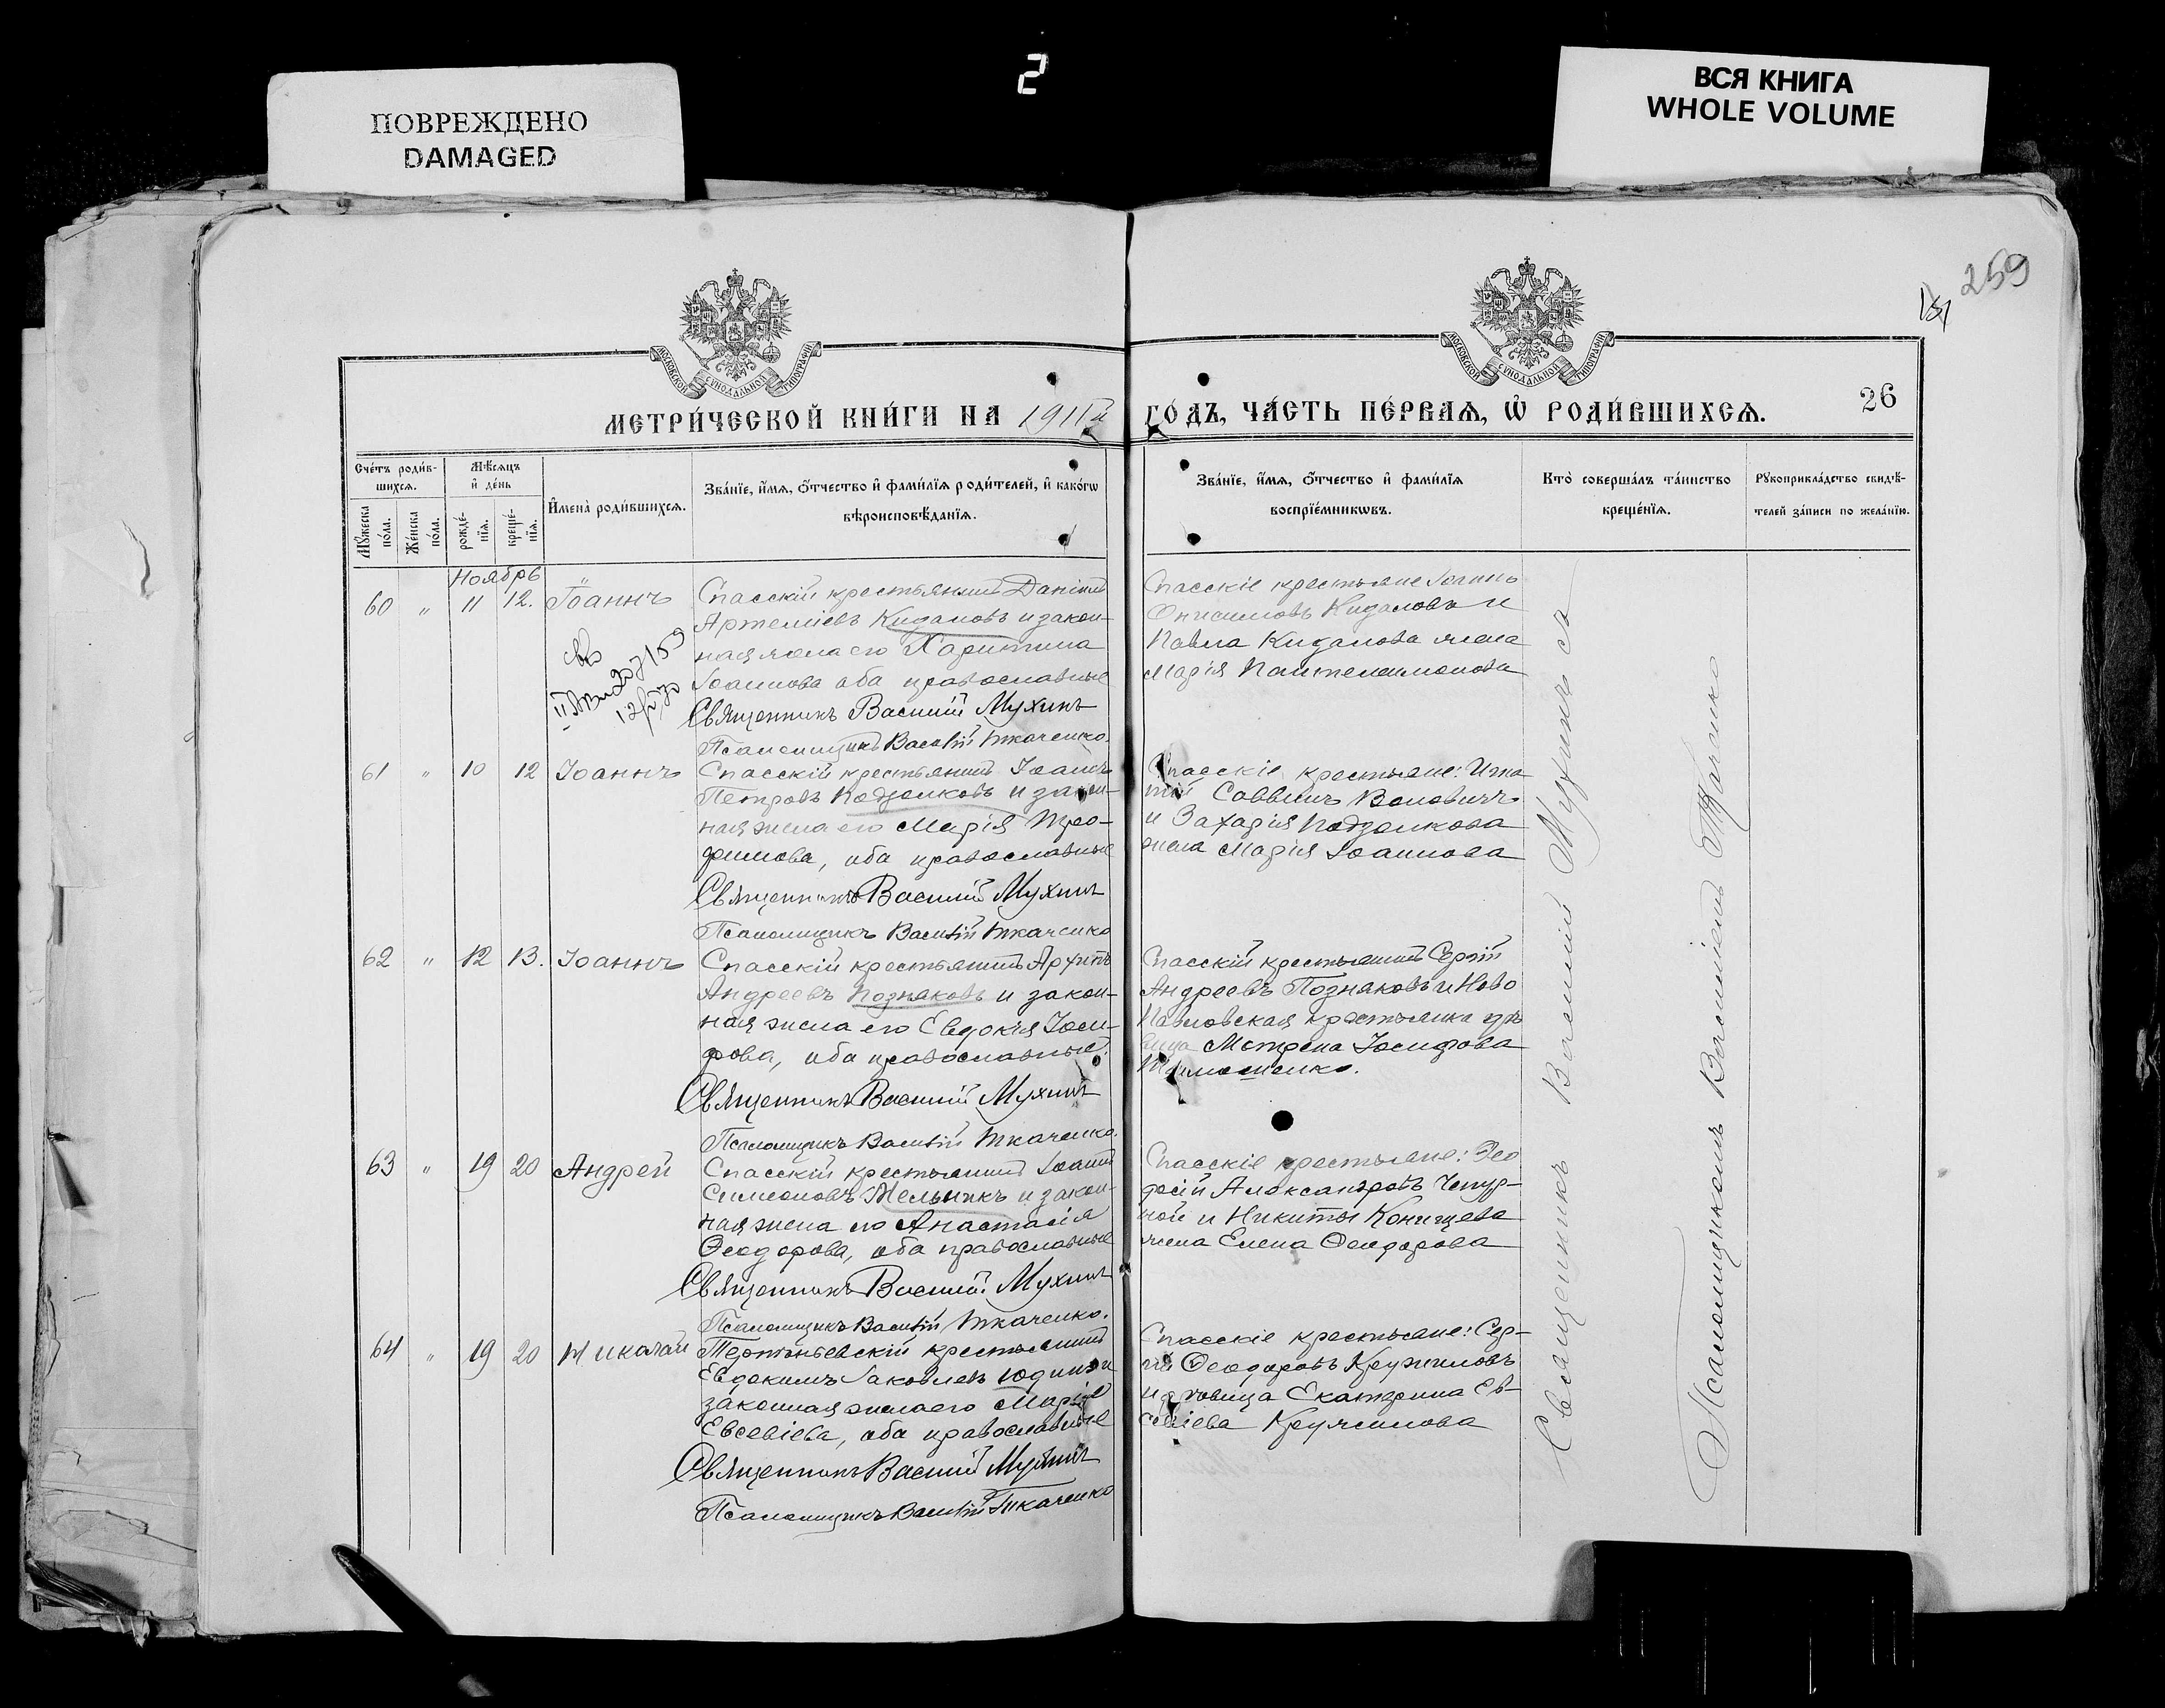 2
ПОВРЕЖДЕНО
DAMAGED
ВСЯ КНИГА
WHOLE VOLUME
259
МОСКОВСКОЙ СУНОДАЛЬНОЙ ТИПОГРАФІИ
МОСКОВСКОЙ СУНОДАЛЬНОЙ ТИПОГРАФІИ
МЕТРИ́ЧЕСКОЙ КНИ́ГИ НА 191
ГО́ДЪ, ЧА́СТЬ ПЕ́РВАѦ, Ѡ҆ РОДИ́ВШИХСѦ.
26
Сче́тъ роди́в-
шихсѧ.
Мꙋ́жеска
по́ла.
Же́нска
по́ла.
Мѣ́сѧцъ
и҆ де́нь
рожде́-
нїѧ.
креще́-
нїѧ.
И҆мена̀ роди́вшихсѧ.
Зва́нїе, и҆́мѧ, ѻ҆́тчество и҆ фами́лїѧ роди́телей, и҆ како́гѡ
вѣроисповѣ́данїѧ.
Зва́нїе, и҆́мѧ, ѻ҆́тчество и҆ фами́лїѧ
воспрїе́мникѡвъ.
Кто̀ соверша́лъ та́инство
креще́нїѧ.
Рꙋкоприкла́дство свидѣ́-
телей за́писи по жела́нїю.
Ноябрь
60 " 11 12. Іоаннъ
Спасскій крестьянинъ Даніилъ
Артеміевъ Кидаловъ и закон-
ная жена его Харитина
Іоаннова оба православные
Священникъ Василій Мухинъ
Псаломщикъ Василій Ткаченко.
Спасскіе крестьяне Іоаннъ
Онисимовъ Кидаловъ и
Павла Кидалова жена
Марія Пантелеимонова
61 " 10 12 Іоаннъ
Спасскій крестьянинъ Іоаннъ
Петровъ Подзолковъ и закон-
ная жена его Марія Тро-
фимова, оба православные
Священникъ Василій Мухинъ
Псаломщикъ Василій Ткаченко
Спасскіе крестьяне: Игна
тій Саввинъ Воловичъ
и Захарія Подзолкова
жена Марія Іоаннова
62 " 12 13. Іоаннъ
Спасскій крестьянинъ Архипъ
Андреевъ Позняковъ и закон-
ная жена его Евдокія Іоси-
фова, оба православные.
Священникъ Василій Мухинъ
Псаломщикъ Василій Ткаченко.
Спасскій крестьянинъ Сергій
Андреевъ Позняковъ и Ново
Павловская крестьянка дѣ
вица Матрена Іосифова
Тимошенко.
63 " 19 20 Андрей
Спасскій крестьянинъ Іоаннъ
Симеоновъ Мельникъ и закон-
ная жена его Анастасія
Ѳеодорова, оба православные
Священникъ Василій Мухинъ
Псаломщикъ Василій Ткаченко.
Спасскіе крестьяне: Ѳео
досій Александровъ Чепур-
ной и Никиты Конищева
жена Елена Ѳеодорова
64 " 19 20 Николай
крестьянинъ
Евдокимъ Іаковлевъ Юдинъ и
законная жена его Марія
Евсевіева, оба православные
Священникъ Василій Мухинъ
Псаломщикъ Василій Ткаченко
Спасскіе крестьяне: Сер-
гій Ѳеодоровъ Кружиловъ
и дѣвица Екатерина Ев-
севіева Кружилова
Священникъ Василій Мухинъ съ
Псаломщикомъ Василіемъ Ткаченко